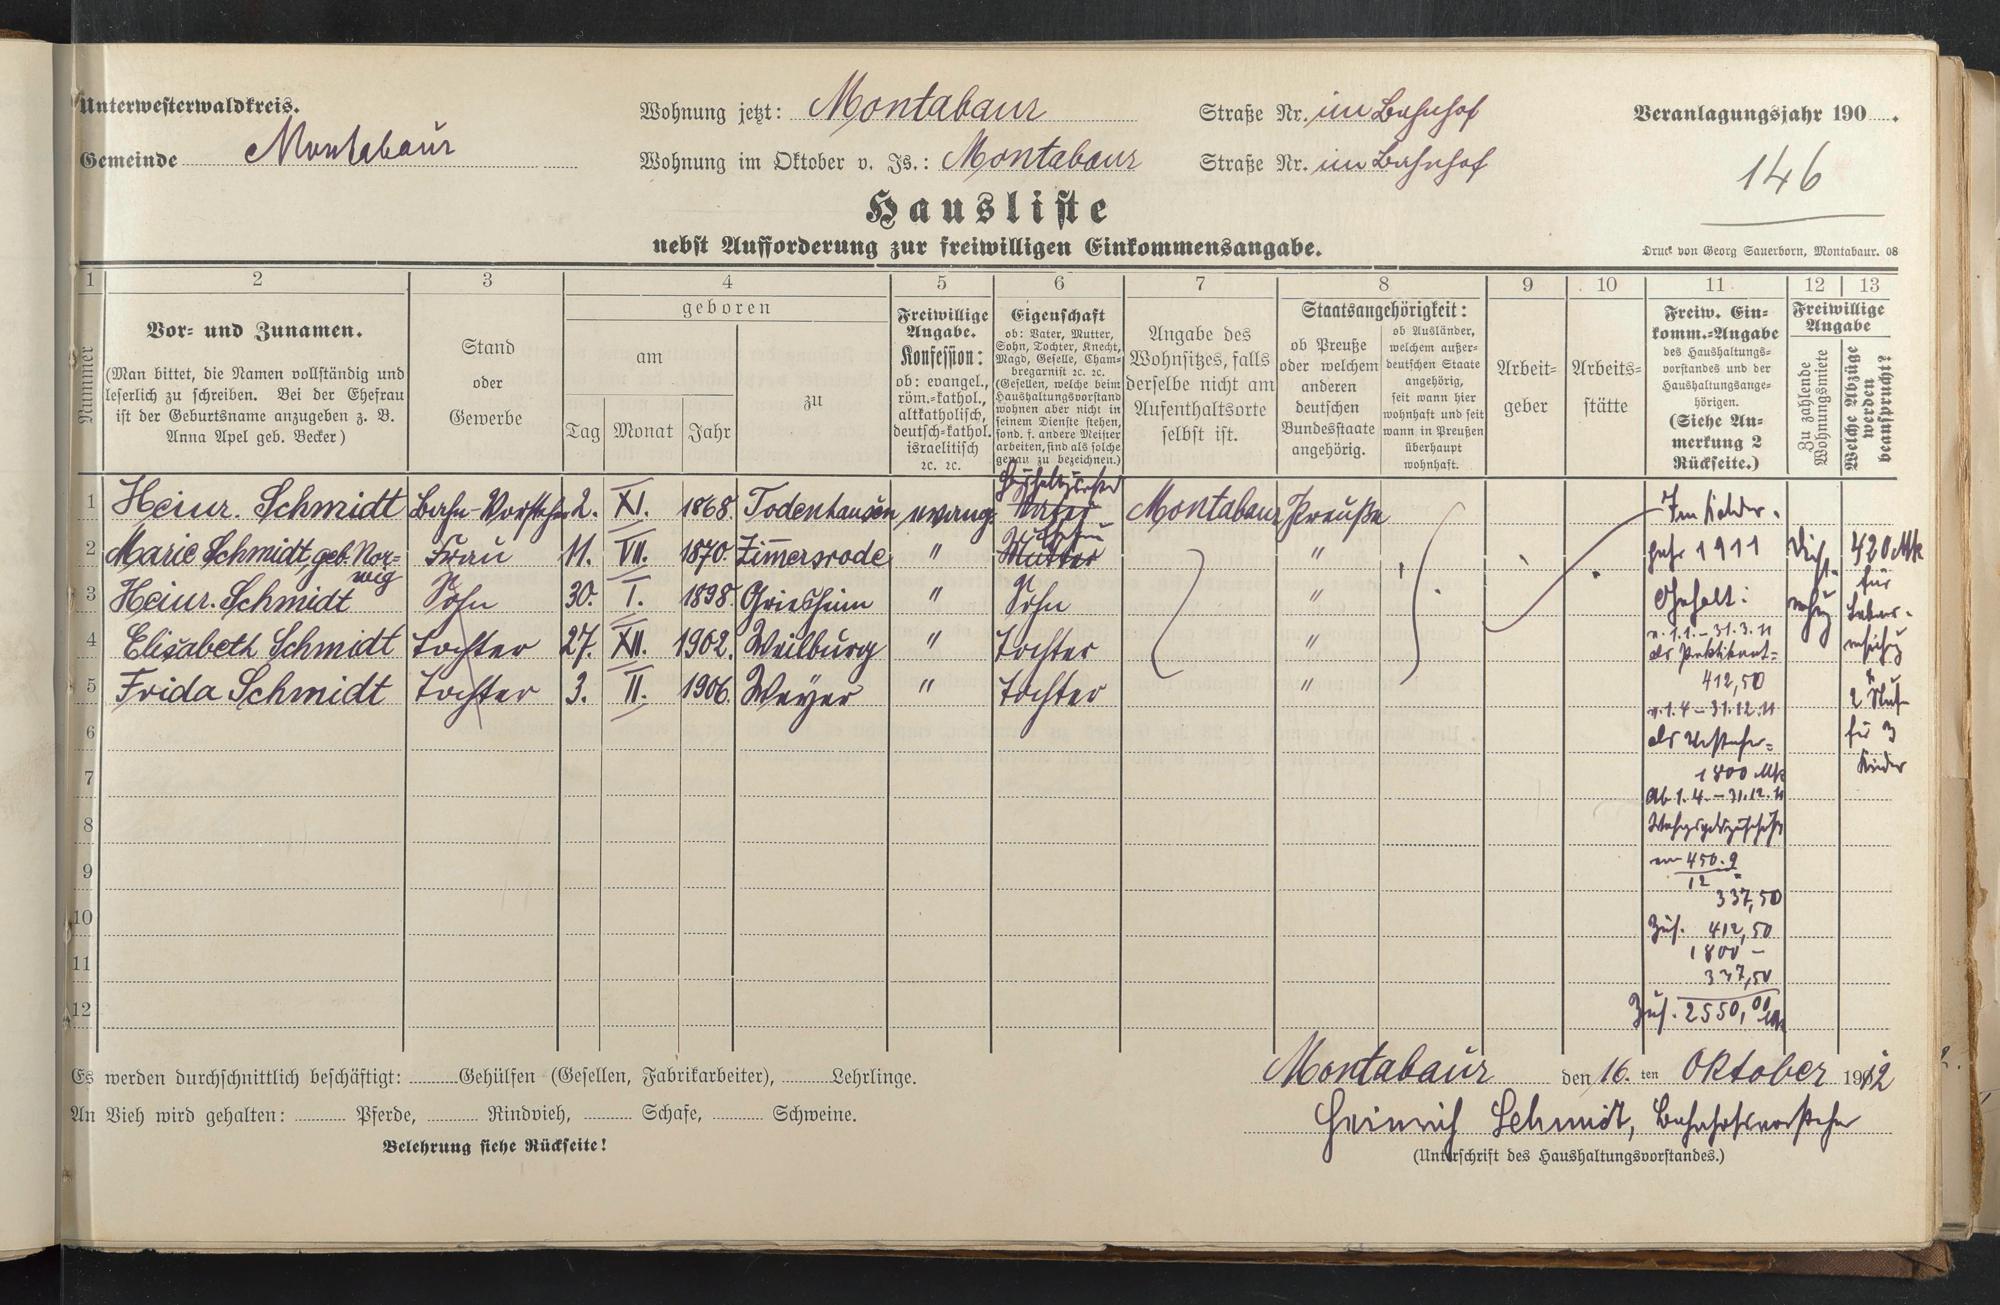 Unterwesterwaldkreis.
Gemeinde Montabaur
Wohnung jetzt: Montabaur Straße Nr. im Bahnhof
Wohnung im Oktober v. Js.: Montabaur Straße Nr. im Bahnhof
Veranlagungsjahr 190 .
146
Hausliste
nebst Aufforderung zur freiwilligen Einkommensangabe.
Druck von Georg Sauerborn, Montabaur. 08
1 2 3 4 5 6 7 8 9 10 11 12 13
Nummer
Vor- und Zunamen.
(Man bittet, die Namen vollständig und
leserlich zu schreiben. Bei der Ehefrau
ist der Geburtsname anzugeben z. B.
Anna Apel geb. Becker)
Stand
oder
Gewerbe
geboren
am
Tag Monat Jahr
zu
Freiwillige
Angabe.
Konfession:
ob: evangel.,
röm.-kathol.,
altkatholisch,
deutsch-kathol.
israelitisch
ꝛc. ꝛc.
Eigenschaft
ob: Vater, Mutter,
Sohn, Tochter, Knecht,
Magd, Geselle, Cham-
bregarnist ꝛc. ꝛc.
(Gesellen, welche beim
Haushaltungsvorstand
wohnen aber nicht in
seinem Dienste stehen,
sond. f. andere Meister
arbeiten, sind als solche
genau zu bezeichnen.)
Angabe des
Wohnsitzes, falls
derselbe nicht am
Aufenthaltsorte
selbst ist.
Staatsangehörigkeit:
ob Preuße
oder welchem
anderen
deutschen
Bundesstaate
angehörig.
ob Ausländer,
welchem außer-
deutschen Staate
angehörig,
seit wann hier
wohnhaft und seit
wann in Preußen
überhaupt
wohnhaft.
Arbeit-
geber
Arbeits-
stätte
Freiw. Ein-
komm.-Angabe
des Haushaltungs-
vorstandes und der
Haushaltungsange-
hörigen.
(Siehe An-
merkung 2
Rückseite.)
Freiwillige
Angabe
Zu zahlende
Wohnungsmiete
Welche Abzüge
werden
beansprucht?
1 Heinr. Schmidt Bahn-Vorsteher 2. XI. 1868. Todenhausen evang. Vater Montabaur Preuße
2 Marie Schmidt, geb. Nor-
wig Frau 11. VII. 1870. Zimersrode " Mutter "
3 Heinr. Schmidt Sohn 30. I. 1898. Griesheim " Sohn "
4 Elisabeth Schmidt Tochter 27. XII. 1902. Weilburg " Tochter "
5 Frida Schmidt Tochter 3. II. 1906. Weyer " Tochter "
6
7
8
9
10
11
12
Im Kalender-
jahr 1911
Gehalt:
v. 1.1. – 31.3.11
als Praktikant =
412,50
v. 1.4 – 31.12.11
als Vorsteher =
1800 Mk
Ab 1.4. – 31.12.11
450 . 9
12
337,50
Zus. 412,50
1800 –
337,50
Zus. 2550,00
420 Mk
für
Lebens-
2
für 3
Kinder
Es werden durchschnittlich beschäftigt: Gehülfen (Gesellen, Fabrikarbeiter), Lehrlinge.
An Vieh wird gehalten: Pferde, Rindvieh, Schafe, Schweine.
Belehrung siehe Rückseite!
Montabaur den 16. ten Oktober 1912
Heinrich Schmidt, Bahnhofsvorsteher
(Unterschrift des Haushaltungsvorstandes.)